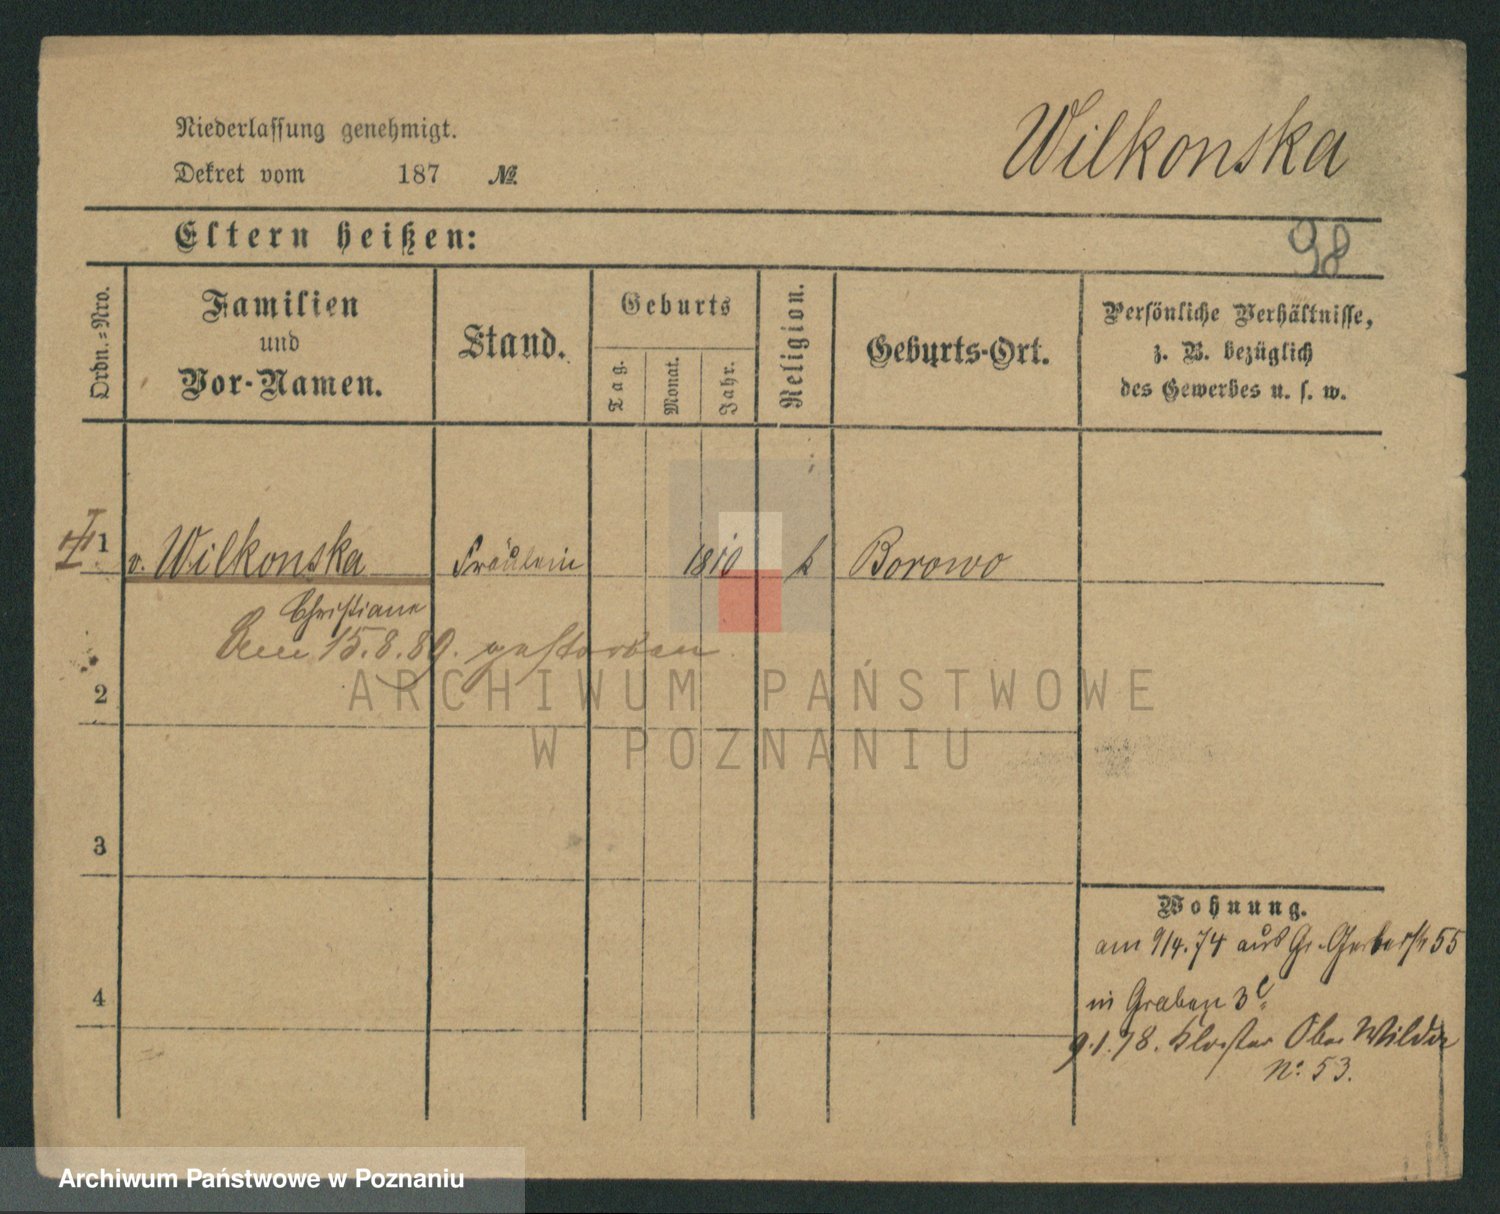 Niederlassung genehmigt.
Wilkonska
Dekret vom 187 №
Eltern heißen:
98
Ordn.-Nro.
Familien
und
Vor-Namen.
Stand.
Geburts
Tag.
Monat.
Jahr.
Religion.
Geburts-Ort.
Persönliche Verhältnisse,
z. B. bezüglich
des Gewerbes u. s. w.
1 v. Wilkonska Fräulein 1810 k Borowo
Christiane
Am 15.8.89. gestorben
2
3
4
Wohnung.
am 9/4.74 aus Gr. Gerberstr 55
in Graben 3
9.1.78. Kloster Ober Wilda
No. 53.
ARCHIWUM PAŃSTWOWE
W POZNANIU
Archiwum Państwowe w Poznaniu